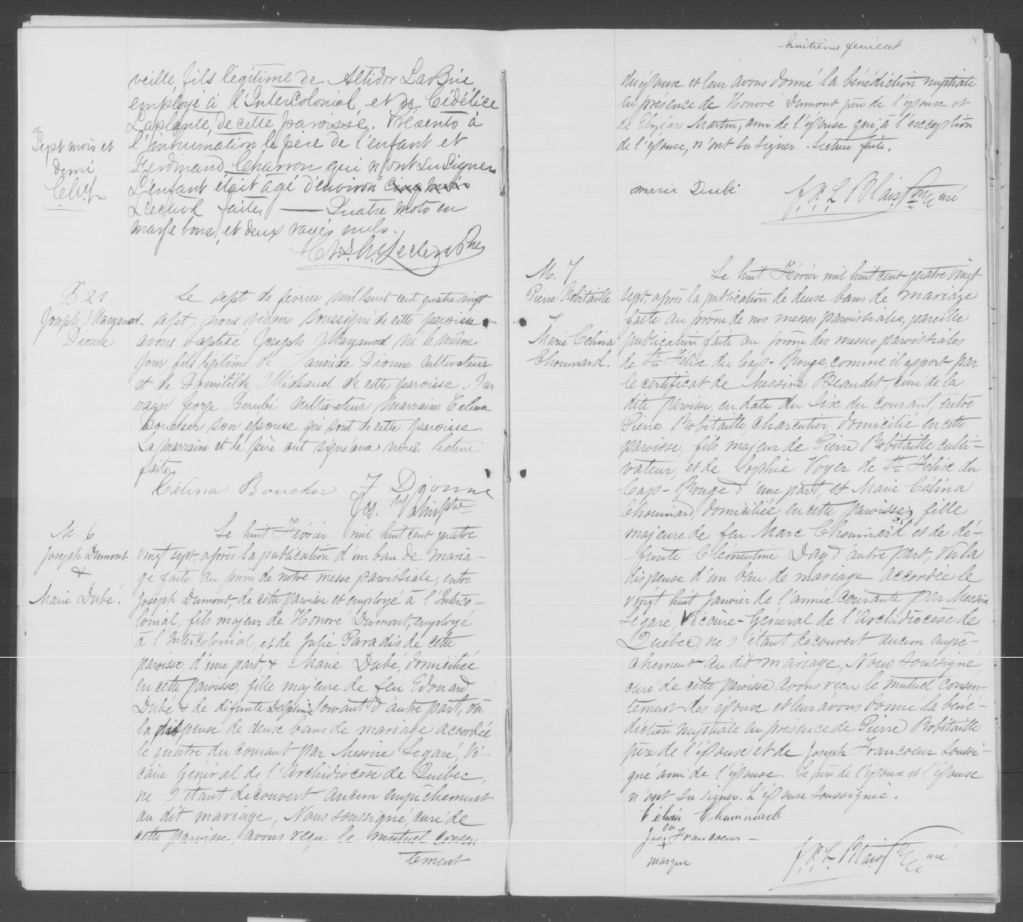 veille, fils légitime de Altidor LaBrie
employé à l'Intercolonial et de Cédélice
Laplante, de cette paroisse. Présents à
l'inhumation le père de l'enfant et
Ferdinand Charron qui n'ont su signer
L'enfant était âgé d'environ
Lecture faite, — Quatre mots en
marge bons, et deux rayés nuls.
Leclerc Ptre
Sept mois et
demi
B 21
Joseph Magnand
Dionne
Le sept de fevrier mil huit cent quatre vingt
sept, nous vicaire soussigné de cette paroisse
avons baptisé Joseph Magnand né le même
jour fils légitime de Dionne cultivateur
et de Domitilde Michaud de cette paroisse. Par
rain George Berubé cultivateur Marraine Celina
Boucher son epouse qui sont de cette paroisse.
La marraine et le père ont signé avec nous. Lecture
faite.
Célina Boucher J. Dionne
Jos. Ptre
M. 6
Joseph Dumont
&
Marie Dubé.
Le huit Février mil huit cent quatre
vingt sept après la publication d'un ban de maria-
ge faite au prône de notre messe paroissiale, entre
Joseph Dumont, de cette paroisse et employé à l'Interco-
lonial, fils majeur de Honoré Dumont, employé
à l'Intercolonial, et de Julie Paradis de cette
paroisse d'une part & Marie Dubé, domiciliée
en cette paroisse, fille majeure de feu Edouard
Dubé & de défunte Daphné d'autre part, vu
la dispense de deux bans de mariage accordée
le quatre du courant par Messire Legaré Vi-
caire Général de l'Archidiocèse de Québec,
ne s'étant découvert aucun empêchement
au dit mariage, Nous soussigné curé de
cette paroisse, avons reçu le mutuel consen-
tement
huitième feuillet
des époux et leur avons donné la bénédiction nuptiale
en présence de Honoré Dumont père de l'époux et
de Elzéar Martin, ami de l'épouse qui, à l'exception
de l'épouse, n'ont su signer. Lecture faite.
marie Dubé
F. X. L. Blais Ptre Curé
M. 7
Pierre Robitaille
&
Marie Célina
Chouinard.
Le huit Février mil huit cent quatre vingt
sept, après la publication de deux bans de mariage
faite au prône de nos messes paroissiales, pareille
publication faite au prône des messes paroissiales
de St. Félix du Cap-Rouge comme il appert par
le certificat de Messire Beaudet curé de la
dite paroisse en date du six du courant, entre
Pierre Robitaille charretier domicilié en cette
paroisse, fils majeur de Pierre Robitaille culti-
vateur, et de Sophie Voyer de St. Félix du
Cap-Rouge d'une part, et Marie Célina
Chouinard, domiciliée en cette paroisse, fille
majeure de feu Marc Chouinard et de dé-
funte Clementine d'autre part. Vu la
dispense d'un ban de mariage accordée le
vingt huit janvier de l'année courante par Messire
Legaré Vicaire-Général de l'Archidiocèse de
Québec, ne s'étant découvert aucun empê-
chement au dit mariage, Nous soussigné
curé de cette paroisse avons reçu le mutuel consen-
tement des époux et leur avons donné la béné-
diction nuptiale en présence de Pierre Robitaille
père de l'époux et de Joseph Francoeur soussi-
gné ami de l'épouse. Le père de l'époux et l'époux
n'ont su signer. L'épouse soussignée.
Célina Chouinard
Francoeur
marque
F. X. L. Blais Ptre Curé